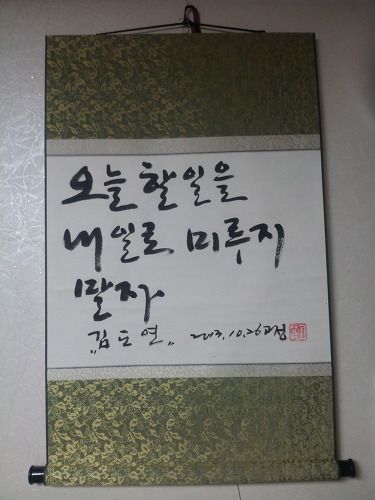 오늘 할 일을
내일로 미루지
말자
"김도연" 2013.10.26